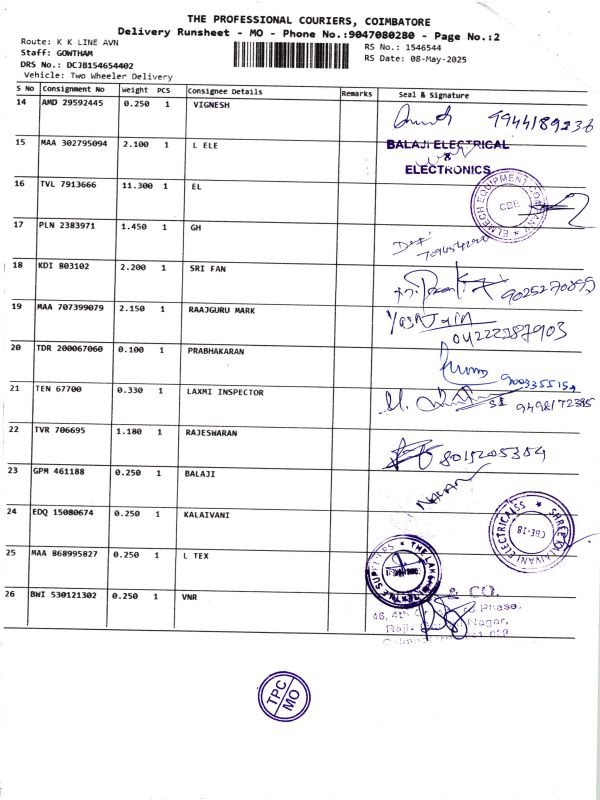 THE PROFESSIONAL COURIERS, COIMBATORE
Delivery Runsheet - MO - Phone No.:9047080280 - Page No.:2
Route: K K LINE AVN
RS No.: 1546544
Staff: GOWTHAM
RS Date: 08-May-2025
DRS No.: DCJB154654402
Vehicle: Two Wheeler Delivery
S No Consignment No Weight PCS Consignee Details Remarks Seal & Signature
14 AMD 29592445 0.250 1 VIGNESH
9944189236
15 MAA 302795094 2.100 1 L ELE
BALAJI ELECTRICAL
&
ELECTRONICS
16 TVL 7913666 11.300 1 EL
ELMECH EQUIPMENT COMPANY
CBE
17 PLN 2383971 1.450 1 GH
18 KDI 803102 2.200 1 SRI FAN
9025270899
19 MAA 707399079 2.150 1 RAAJGURU MARK
Yash Jain
04222287903
20 TDR 200067060 0.100 1 PRABHAKARAN
21 TEN 67700 0.330 1 LAXMI INSPECTOR
SI 9498172395
22 TVR 706695 1.180 1 RAJESWARAN
8015205354
23 GPM 461188 0.250 1 BALAJI
24 EDQ 15080674 0.250 1 KALAIVANI
SHREE KALAIVANI ELECTRICALSS
CBE-18
25 MAA 868995827 0.250 1 L TEX
26 BWI 530121302 0.250 1 VNR
& CO.
46, 4th Phase,
Nagar,
TPC
MO